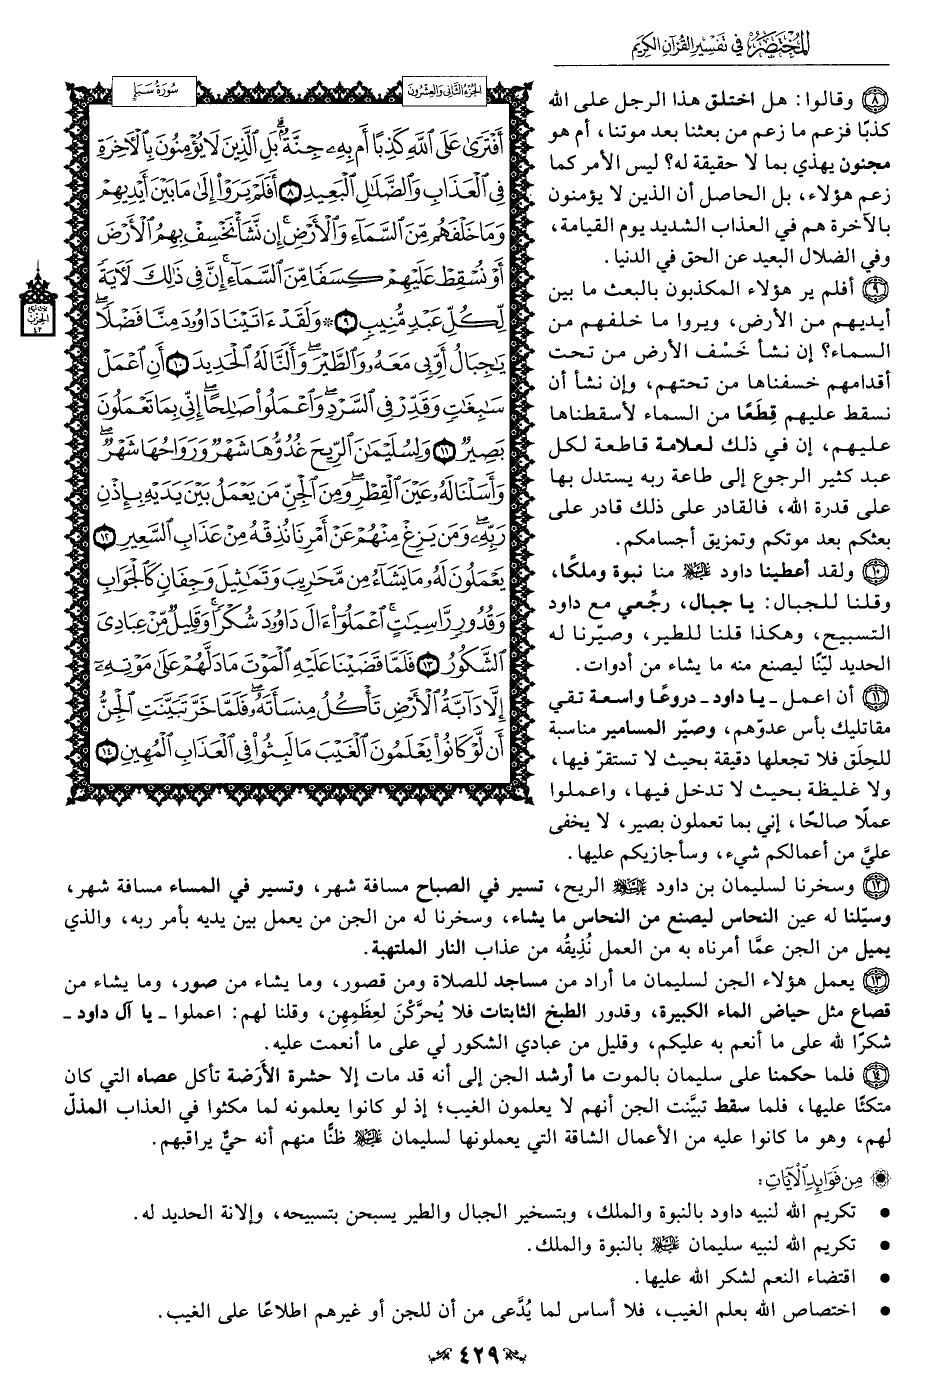 المختصر في تفسير القرآن الكريم
الجزء الثاني والعشرون
سورة سبإ
أَفْتَرَىٰ عَلَى ٱللَّهِ كَذِبًا أَم بِهِۦ جِنَّةٌۢ ۗ بَلِ ٱلَّذِينَ لَا يُؤْمِنُونَ بِٱلْأَخِرَةِ
فِي ٱلْعَذَابِ وَٱلضَّلَٰلِ ٱلْبَعِيدِ ٨ أَفَلَمْ يَرَوْا۟ إِلَىٰ مَا بَيْنَ أَيْدِيهِمْ
وَمَا خَلْفَهُم مِّنَ ٱلسَّمَآءِ وَٱلْأَرْضِ ۚ إِن نَّشَأْ نَخْسِفْ بِهِمُ ٱلْأَرْضَ
أَوْ نُسْقِطْ عَلَيْهِمْ كِسَفًا مِّنَ ٱلسَّمَآءِ ۚ إِنَّ فِي ذَٰلِكَ لَأٓيَةً
لِّكُلِّ عَبْدٍ مُّنِيبٍ ٩ ۞ وَلَقَدْ ءَاتَيْنَا دَاوُۥدَ مِنَّا فَضْلًا ۖ
يَٰجِبَالُ أَوِّبِي مَعَهُۥ وَٱلطَّيْرَ ۖ وَأَلَنَّا لَهُ ٱلْحَدِيدَ ١٠ أَنِ ٱعْمَلْ
سَٰبِغَٰتٍ وَقَدِّرْ فِي ٱلسَّرْدِ ۖ وَٱعْمَلُوا۟ صَٰلِحًا ۖ إِنِّي بِمَا تَعْمَلُونَ
بَصِيرٌ ١١ وَلِسُلَيْمَٰنَ ٱلرِّيحَ غُدُوُّهَا شَهْرٌ وَرَوَاحُهَا شَهْرٌ ۖ
وَأَسَلْنَا لَهُۥ عَيْنَ ٱلْقِطْرِ ۖ وَمِنَ ٱلْجِنِّ مَن يَعْمَلُ بَيْنَ يَدَيْهِ بِإِذْنِ
رَبِّهِۦ ۖ وَمَن يَزِغْ مِنْهُمْ عَنْ أَمْرِنَا نُذِقْهُ مِنْ عَذَابِ ٱلسَّعِيرِ ١٢
يَعْمَلُونَ لَهُۥ مَا يَشَآءُ مِن مَّحَٰرِيبَ وَتَمَٰثِيلَ وَجِفَانٍ كَٱلْجَوَابِ
وَقُدُورٍ رَّاسِيَٰتٍ ۚ ٱعْمَلُوٓا۟ ءَالَ دَاوُۥدَ شُكْرًا ۚ وَقَلِيلٌ مِّنْ عِبَادِيَ
ٱلشَّكُورُ ١٣ فَلَمَّا قَضَيْنَا عَلَيْهِ ٱلْمَوْتَ مَا دَلَّهُمْ عَلَىٰ مَوْتِهِۦٓ
إِلَّا دَآبَّةُ ٱلْأَرْضِ تَأْكُلُ مِنسَأَتَهُۥ ۖ فَلَمَّا خَرَّ تَبَيَّنَتِ ٱلْجِنُّ
أَن لَّوْ كَانُوا۟ يَعْلَمُونَ ٱلْغَيْبَ مَا لَبِثُوا۟ فِي ٱلْعَذَابِ ٱلْمُهِينِ ١٤
الحزب
٤٣
٨ وقالوا: هل اختلق هذا الرجل على الله
كذبًا فزعم ما زعم من بعثنا بعد موتنا، أم هو
مجنون يهذي بما لا حقيقة له؟ ليس الأمر كما
زعم هؤلاء، بل الحاصل أن الذين لا يؤمنون
بالآخرة هم في العذاب الشديد يوم القيامة،
وفي الضلال البعيد عن الحق في الدنيا.
٩ أفلم ير هؤلاء المكذبون بالبعث ما بين
أيديهم من الأرض، ويروا ما خلفهم من
السماء؟ إن نشأ خَسْف الأرض من تحت
أقدامهم خسفناها من تحتهم، وإن نشأ أن
نسقط عليهم قِطَعًا من السماء لأسقطناها
عليهم، إن في ذلك لعلامة قاطعة لكل
عبد كثير الرجوع إلى طاعة ربه يستدل بها
على قدرة الله، فالقادر على ذلك قادر على
بعثكم بعد موتكم وتمزيق أجسامكم.
١٠ ولقد أعطينا داود عليه السلام منا نبوة وملكًا،
وقلنا للجبال: يا جبال، رجِّعي مع داود
التسبيح، وهكذا قلنا للطير، وصيّرنا له
الحديد ليّنًا ليصنع منه ما يشاء من أدوات.
١١ أن اعمل - يا داود - دروعًا واسعة تقي
مقاتليك بأس عدوّهم، وصيّر المسامير مناسبة
للحِلَق فلا تجعلها دقيقة بحيث لا تستقرّ فيها،
ولا غليظة بحيث لا تدخل فيها، واعملوا
عملًا صالحًا، إني بما تعملون بصير، لا يخفى
عليَّ من أعمالكم شيء، وسأجازيكم عليها.
١٢ وسخرنا لسليمان بن داود عليه السلام الريح، تسير في الصباح مسافة شهر، وتسير في المساء مسافة شهر،
وسيّلنا له عين النحاس ليصنع من النحاس ما يشاء، وسخرنا له من الجن من يعمل بين يديه بأمر ربه، والذي
يميل من الجن عمَّا أمرناه به من العمل نُذِيقُه من عذاب النار الملتهبة.
١٣ يعمل هؤلاء الجن لسليمان ما أراد من مساجد للصلاة ومن قصور، وما يشاء من صور، وما يشاء من
قصاع مثل حياض الماء الكبيرة، وقدور الطبخ الثابتات فلا يُحرَّكْنَ لعِظَمِهِن، وقلنا لهم: اعملوا - يا آل داود -
شكرًا لله على ما أنعم به عليكم، وقليل من عبادي الشكور لي على ما أنعمت عليه.
١٤ فلما حكمنا على سليمان بالموت ما أرشد الجن إلى أنه قد مات إلا حشرة الأَرَضة تأكل عصاه التي كان
متكئًا عليها، فلما سقط تبيَّنت الجن أنهم لا يعلمون الغيب؛ إذ لو كانوا يعلمونه لما مكثوا في العذاب المذلّ
لهم، وهو ما كانوا عليه من الأعمال الشاقة التي يعملونها لسليمان عليه السلام ظنًّا منهم أنه حيٌّ يراقبهم.
من فوائد الآيات:
• تكريم الله لنبيه داود بالنبوة والملك، وبتسخير الجبال والطير يسبحن بتسبيحه، وإلانة الحديد له.
• تكريم الله لنبيه سليمان عليه السلام بالنبوة والملك.
• اقتضاء النعم لشكر الله عليها.
• اختصاص الله بعلم الغيب، فلا أساس لما يُدَّعى من أن للجن أو غيرهم اطلاعًا على الغيب.
٤٢٩